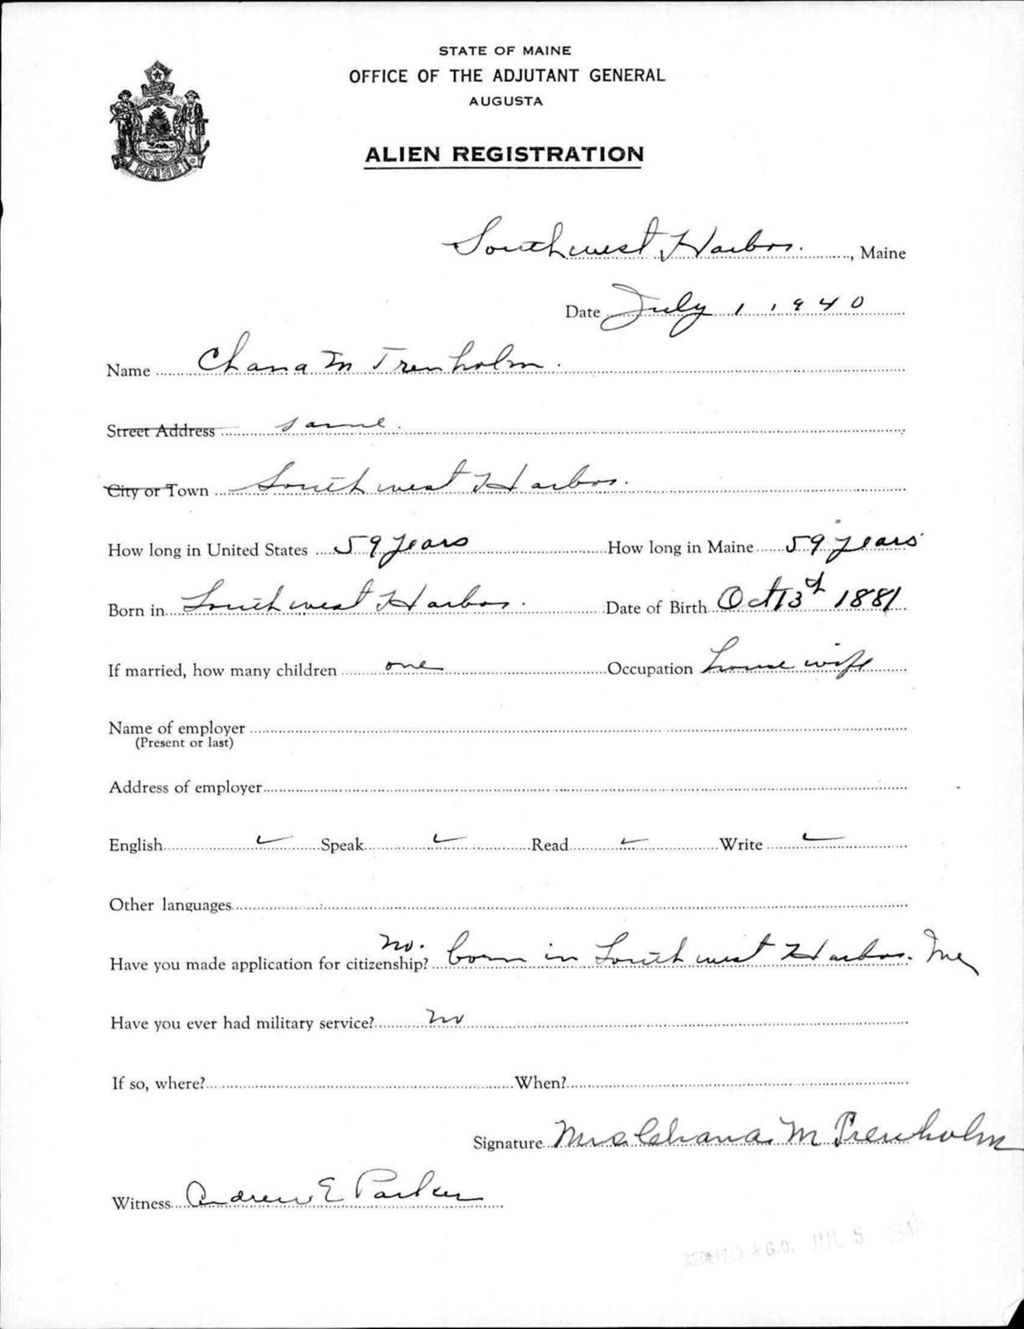 STATE OF MAINE
OFFICE OF THE ADJUTANT GENERAL
AUGUSTA
MAINE
ALIEN REGISTRATION
Southwest Harbor, Maine
Date July 1, 1940
Name Chana M Trenholm.
Street Address same.
City or Town Southwest Harbor.
How long in United States 59 years How long in Maine 59 years
Born in Southwest Harbor. Date of Birth Oct 13th 1881
If married, how many children one Occupation house wife
Name of employer
(Present or last)
Address of employer
English ✓ Speak ✓ Read ✓ Write ✓
Other languages
Have you made application for citizenship? no. born in Southwest Harbor. Me
Have you ever had military service? no
If so, where? When?
Signature Mrs Chana M Trenholm
Witness Andrew E Parker
A.G.O. JUL 5